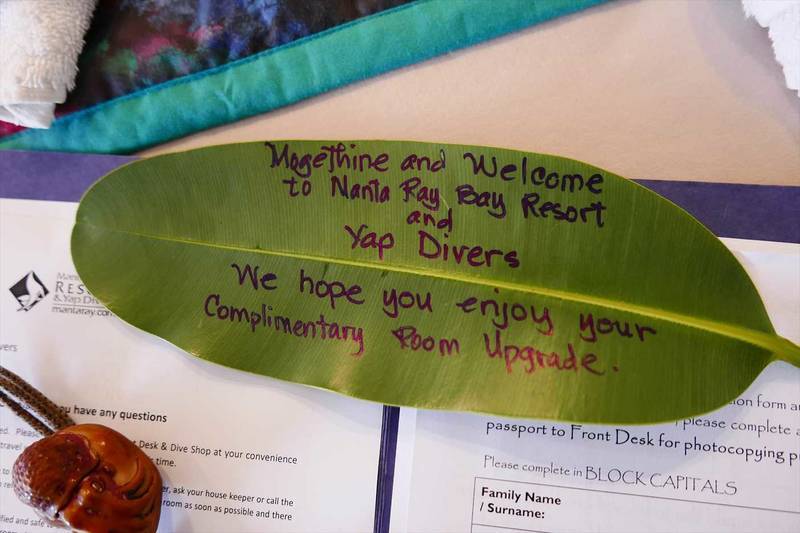 Mogethine and Welcome
to Manta Ray Bay Resort
and
Yap Divers
We hope you enjoy your
Complimentary Room Upgrade.
Man
RES
& Yap Di
mantaray.co
vers
ou have any questions
ed. Pleas
t Desk & Dive Shop at your convenience
travel
time.
er, ask your house keeper or call the
room as soon as possible and there
ified and safe to
on form an
please complete a
passport to Front Desk for photocopying p
Please complete in BLOCK CAPITALS
Family Name
/ Surname: